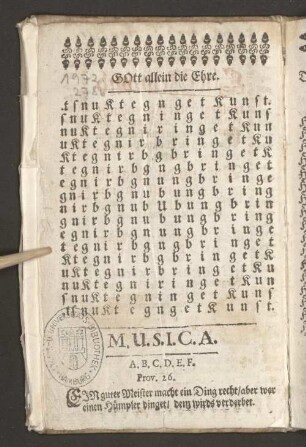 GOtt allein die Ehre.
. t s n u K t e g n g e t K u n s t.
s n u K t e g n i n g e t K u n s
n u K t e g n i r i n g e t K u n
u K t e g n i r b r i n g e t K u
K t e g n i r b g b r i n g e t K
t e g n i r b g n g b r i n g e t
e g n i r b g n u n g b r i n g e
g n i r b g n u b u n g b r i n g
n i r b g n u b U b u n g b r i n
g n i r b g n u b u n g b r i n g
e g n i r b g n u n g b r i n g e
t e g n i r b g n g b r i n g e t
K t e g n i r b g b r i n g e t K
u K t e g n i r b r i n g e t K u
n u K t e g n i r i n g e t K u n
s n u K t e g n i n g e t K u n s
. t s n u K t e g n g e t K u n s t.
M. U. S. I. C. A.
A, B, C, D, E, F.
Prov. 26.
EIN guter Meister macht ein Ding recht/ aber wer
einen Hümpler dinget/ dem wirds verderbet.